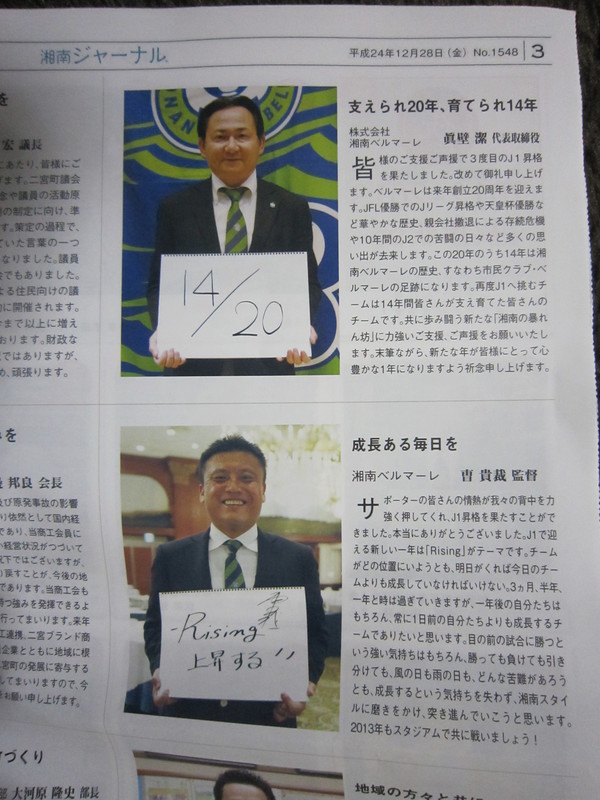 湘南ジャーナル
平成24年12月28日(金) No.1548
3
支えられ20年、育てられ14年
株式会社
湘南ベルマーレ
眞壁 潔 代表取締役
皆様のご支援ご声援で3度目のJ1昇格
を果たしました。改めて御礼申し上げ
ます。ベルマーレは来年創立20周年を迎えます。
JFL優勝でのJリーグ昇格や天皇杯優勝な
ど華やかな歴史、親会社撤退による存続危機
や10年間のJ2での苦闘の日々など多くの思
い出が去来します。この20年のうち14年は湘
南ベルマーレの歴史、すなわち市民クラブ・ベ
ルマーレの足跡になります。再度J1へ挑むチ
ームは14年間皆さんが支え育てた皆さんの
チームです。共に歩み闘う新たな「湘南の暴れ
ん坊」に力強いご支援、ご声援をお願いいたし
ます。末筆ながら、新たな年が皆様にとって心
豊かな1年になりますよう祈念申し上げます。
14/20
成長ある毎日を
湘南ベルマーレ
曺 貴裁 監督
サポーターの皆さんの情熱が我々の背中を力
強く押してくれ、J1昇格を果たすことがで
きました。本当にありがとうございました。J1で迎
える新しい一年は「Rising」がテーマです。チーム
がどの位置にいようとも、明日がくれば今日のチー
ムよりも成長していなければいけない。3ヵ月、半年、
一年と時は過ぎていきますが、一年後の自分たちは
もちろん、常に1日前の自分たちよりも成長するチ
ームでありたいと思います。目の前の試合に勝つと
いう強い気持ちはもちろん、勝っても負けても引き
分けても、風の日も雨の日も、どんな苦難があろう
とも、成長するという気持ちを失わず、湘南スタイ
ルに磨きをかけ、突き進んでいこうと思います。
2013年もスタジアムで共に戦いましょう!
-Rising-
上昇する
を
宏 議長
にあたり、皆様にご
げます。二宮町議会
念や議員の活動原
例の制定に向け、準
す。策定の過程で、
ていた言葉の一つ
なりました。議員
会でもありました。
よる住民向けの議
的に開催されます。
今まで以上に増え
おります。財政な
ではありますが、
め、頑張ります。
を
邦良 会長
及び原発事故の影響
り依然として国内経
であり、当商工会員に
経営状況がつづいて
況下ではございますが、
り戻すことが、今後の地
であります。当商工会も
持つ強みを発揮できるよ
行ってまいります。来年
工連携、二宮ブランド商
企業とともに地域に根
宮町の発展に寄与する
してまいりますので、今
お願い申し上げます。
づくり
部 大河原 隆史 部長
地域の方々と共に